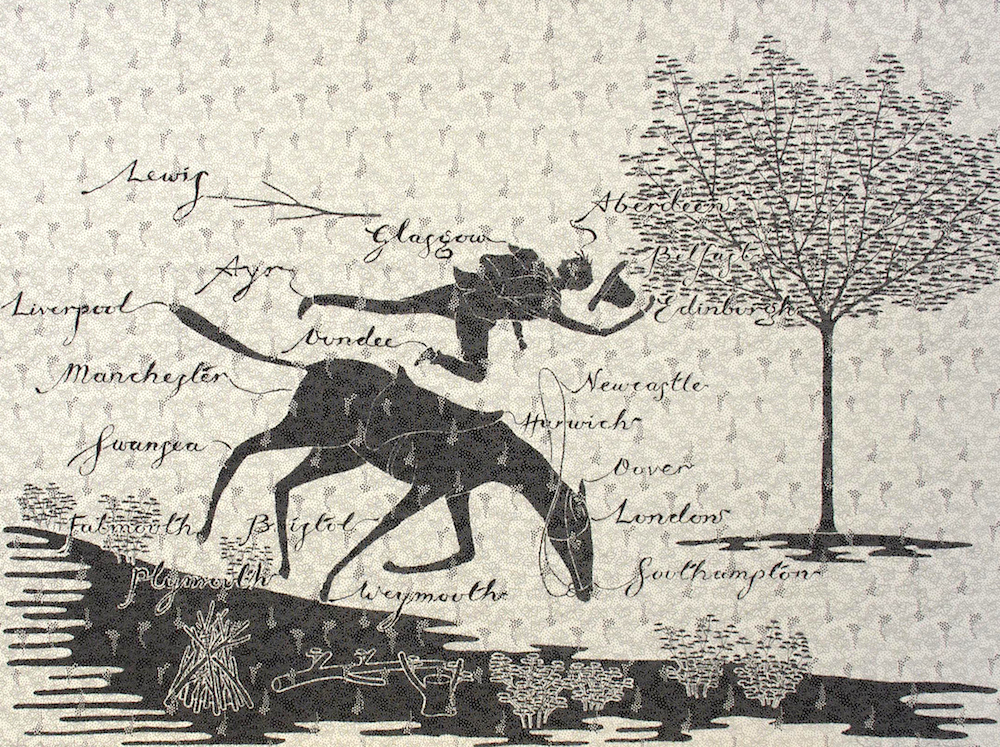 Lewis
Aberdeen
Glasgow
Belfast
Ayr
Liverpool
Edinburgh
Dundee
Manchester
Newcastle
Harwich
Swansea
Dover
London
Falmouth
Bristol
Plymouth
Weymouth
Southampton